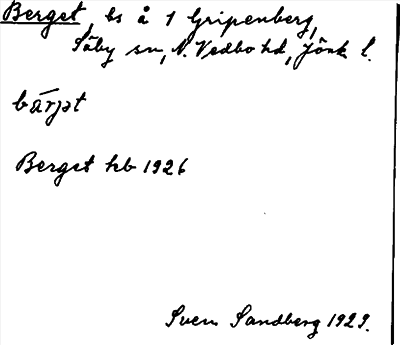 Berget, bs å 1 Gripenberg,
Säby sn, N. Vedbo hd, Jönk l.
bärjət
Berget hb 1926
Sven Sandberg 1929.